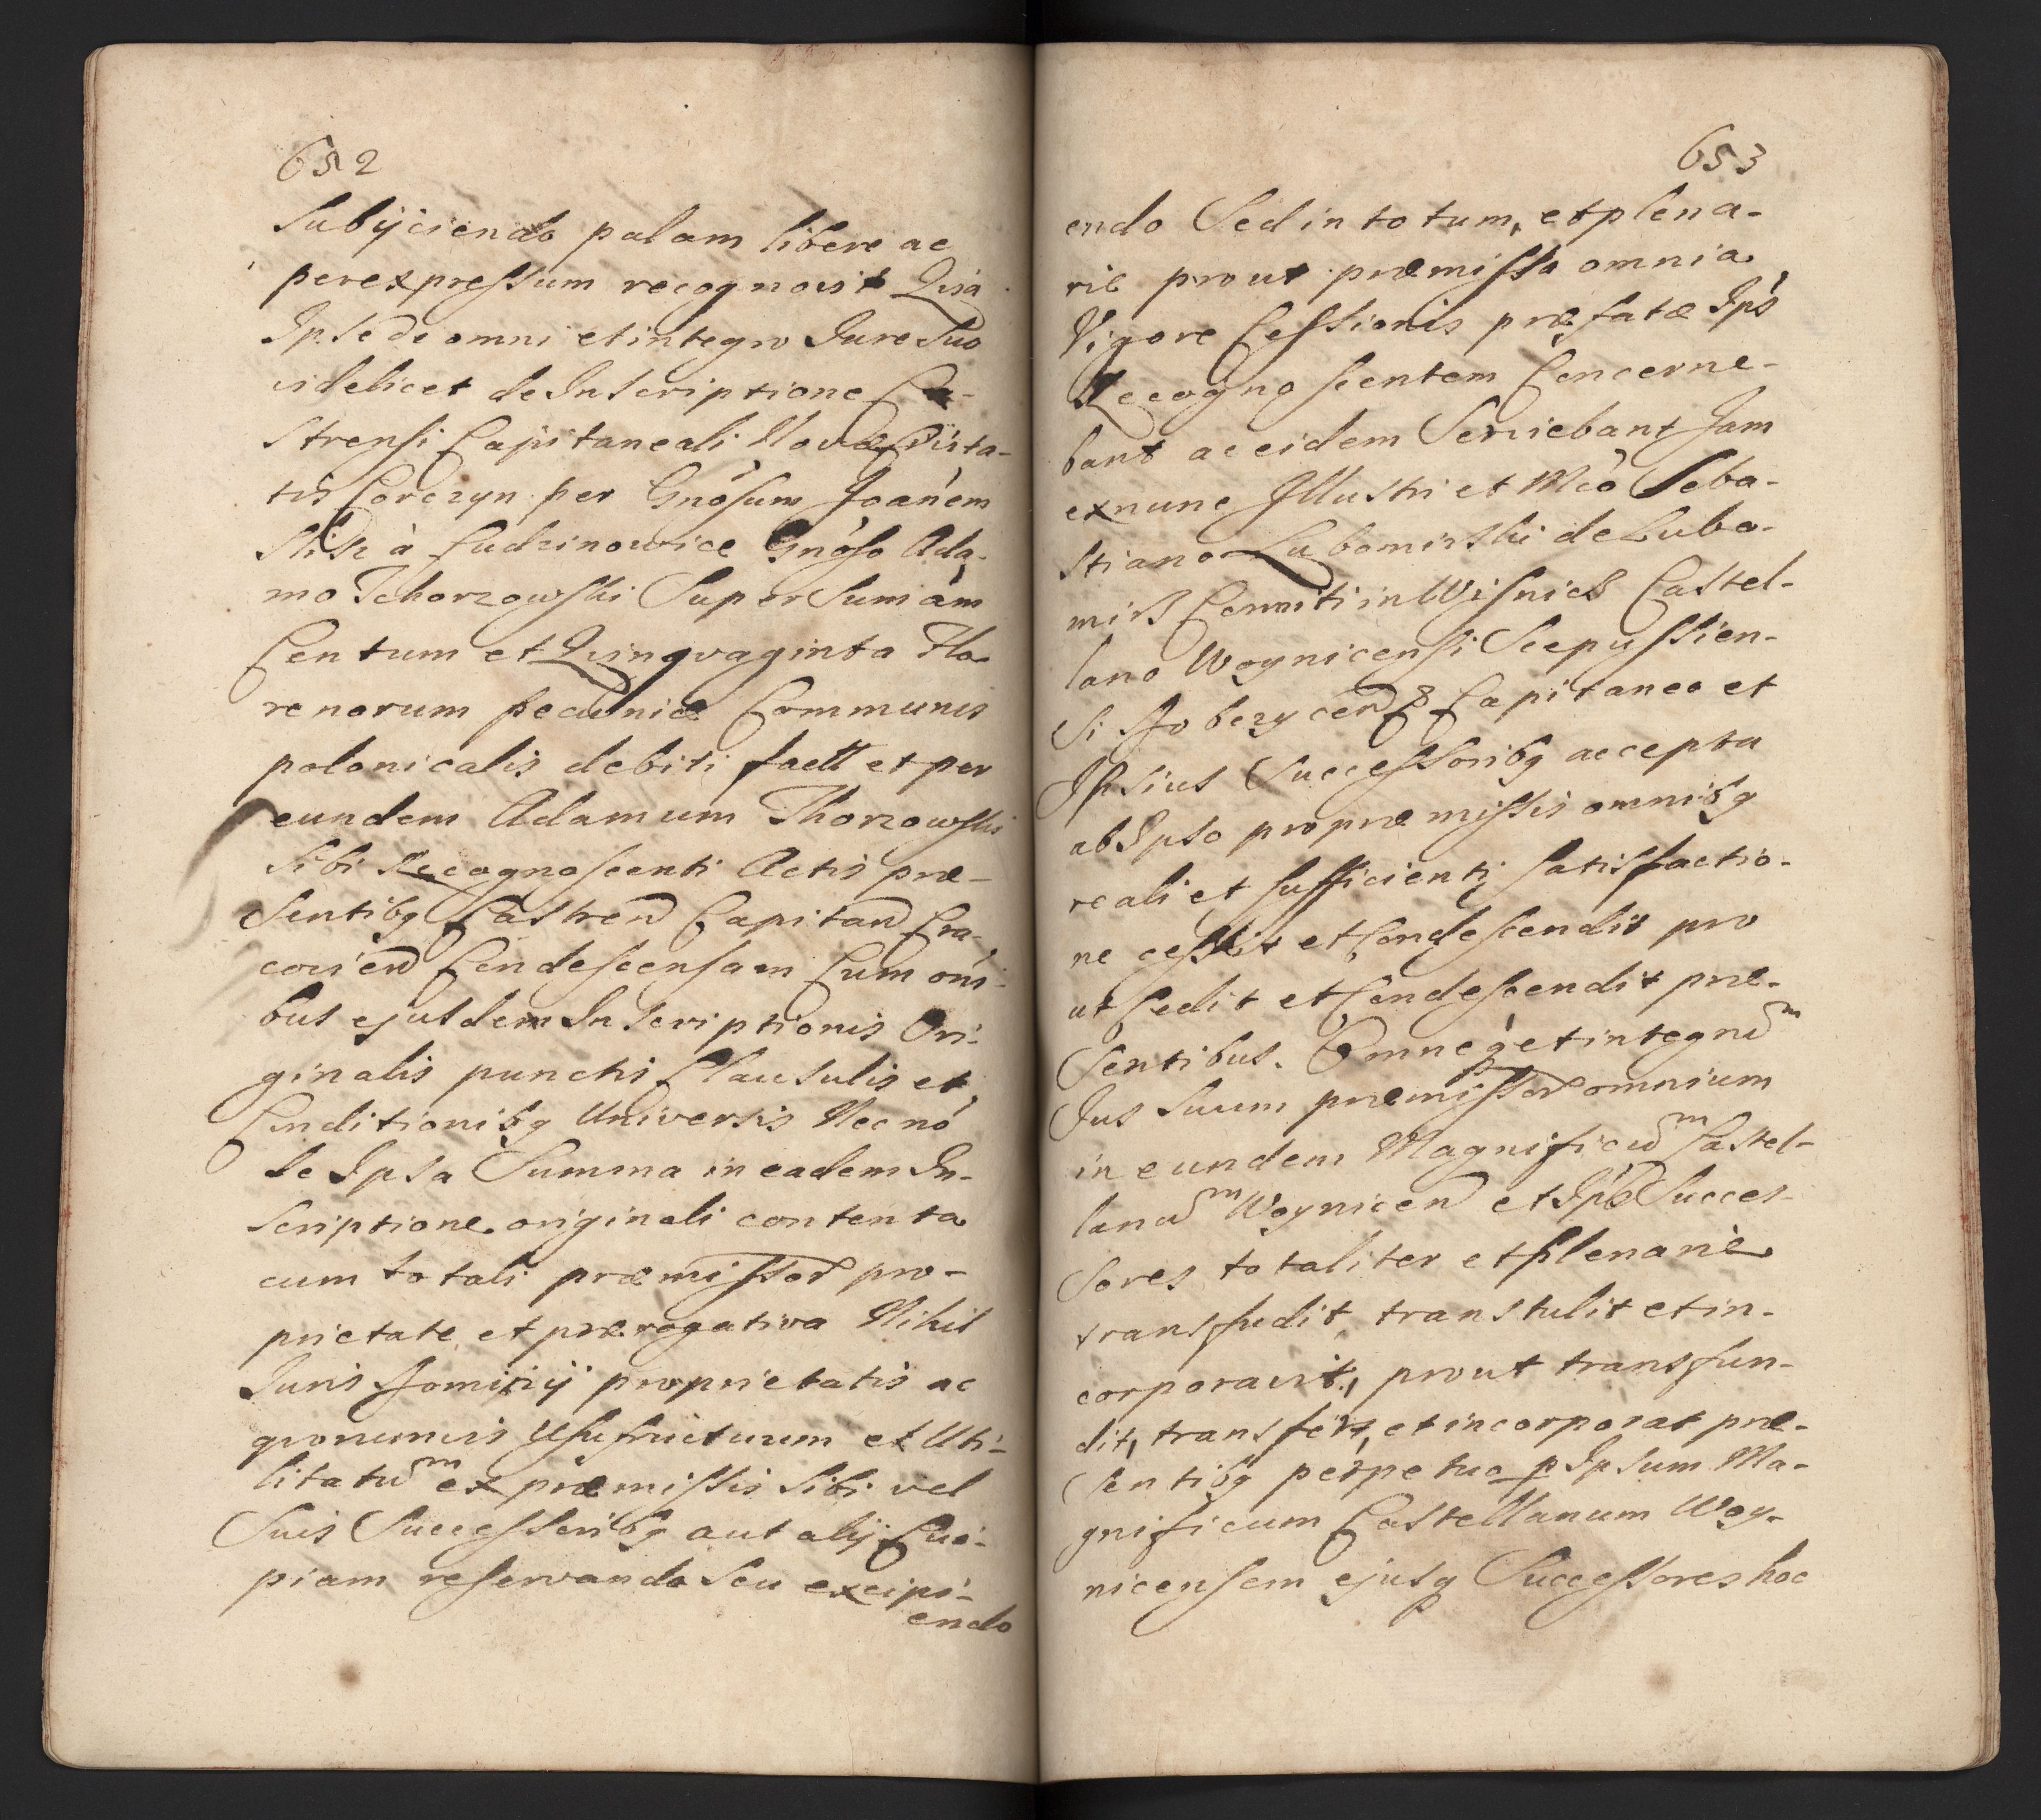 652
Subijciendo palam libere ac
per expressum recognovit Quia
Ipse de omni et integro Jure Suo
videlicet de Inscriptione Ca-
strensi Capitaneali Novæ Civita-
tis Corczyn per Gnosum Joanem
à Ludzinowice Gnoso Ada-
mo Tchorzowski Super Sumam
Centum et Quinqvaginta Flo-
renorum pecuniæ Communis
polonicalis debiti fact et per
eundem Adamum Thorzowski
Sibi Recognoscenti Actis præ-
sentibq Castren Capitan Cra-
covien Condescensam Cum oni-
bus ejusdem Inscriptionis Ori-
ginalis punctis Clausulis et
Conditionibq Universis Nec nó
de Ipsa Summa in eadem In-
scriptione originali contenta
cum totali præmissor pro-
prietate et prærogativa Nihil
Juris Dominij proprietatis ac
qvonumvis Usufructuum et Uti-
litatum ex præmissis Sibi vel
Suis Successoribq aut alij Cui-
piam reservando Seu excipi-
endo
653
endo Sed in totum, et plena-
rie prout præmissa omnia
Vigore Cessionis præfatæ Ips
Recognoscentem Concerne-
bant ac eidem Serviebant Jam
ex nunc Illustri et Mco Seba-
stiano Lubomirski de Lubo-
mirz Comiti in Wisnicz Castel-
lano Woynicensi Scepyssien-
si Dobczycen & Capitaneo et
Ipsius Successoribq accepta
ab Ipso pro præmissis omnibq
reali et sufficienti satisfactio-
ne cessit et Condescendit pro
ut Cedit et Condescendit præ-
sentibus. Omneq et integrum
Jus Suum præmissor omnium
in eundem Magnificum Castel-
lanum Woynicen et Ips Succes-
sores totaliter et plenariè
transfudit transtulit et in-
corporavit, prout transfun-
dit, transfert, et incorporat præ-
sentibq perpetuo p Ipsum Ma-
gnificum Castellanum Woy-
nicensem ejusq Successores hoc